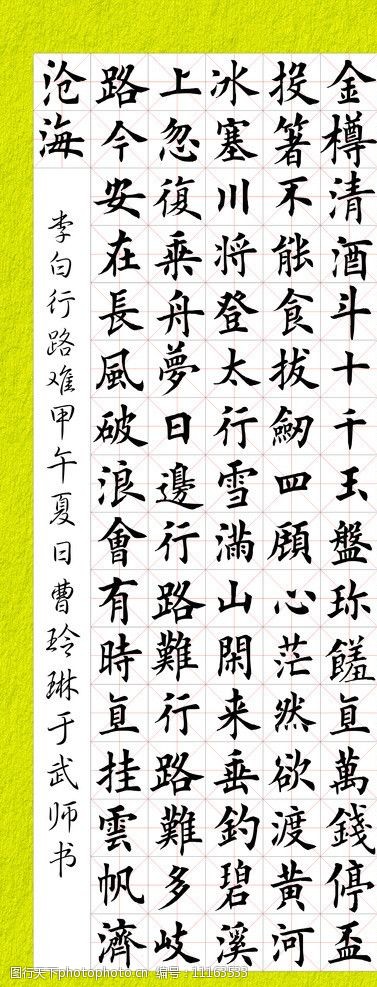 金樽清酒斗十千玉盤珎饈直萬錢停盃
投箸不能食拔劒四顧心茫然欲渡黄河
冰塞川将登太行雪滿山閑来垂釣碧溪
上忽復乘舟夢日邊行路難行路難多岐
路今安在長風破浪會有時直挂雲帆濟
沧海
李白行路难甲午夏日曹玲琳于武师书
图行天下photophoto.cn 编号：11163533